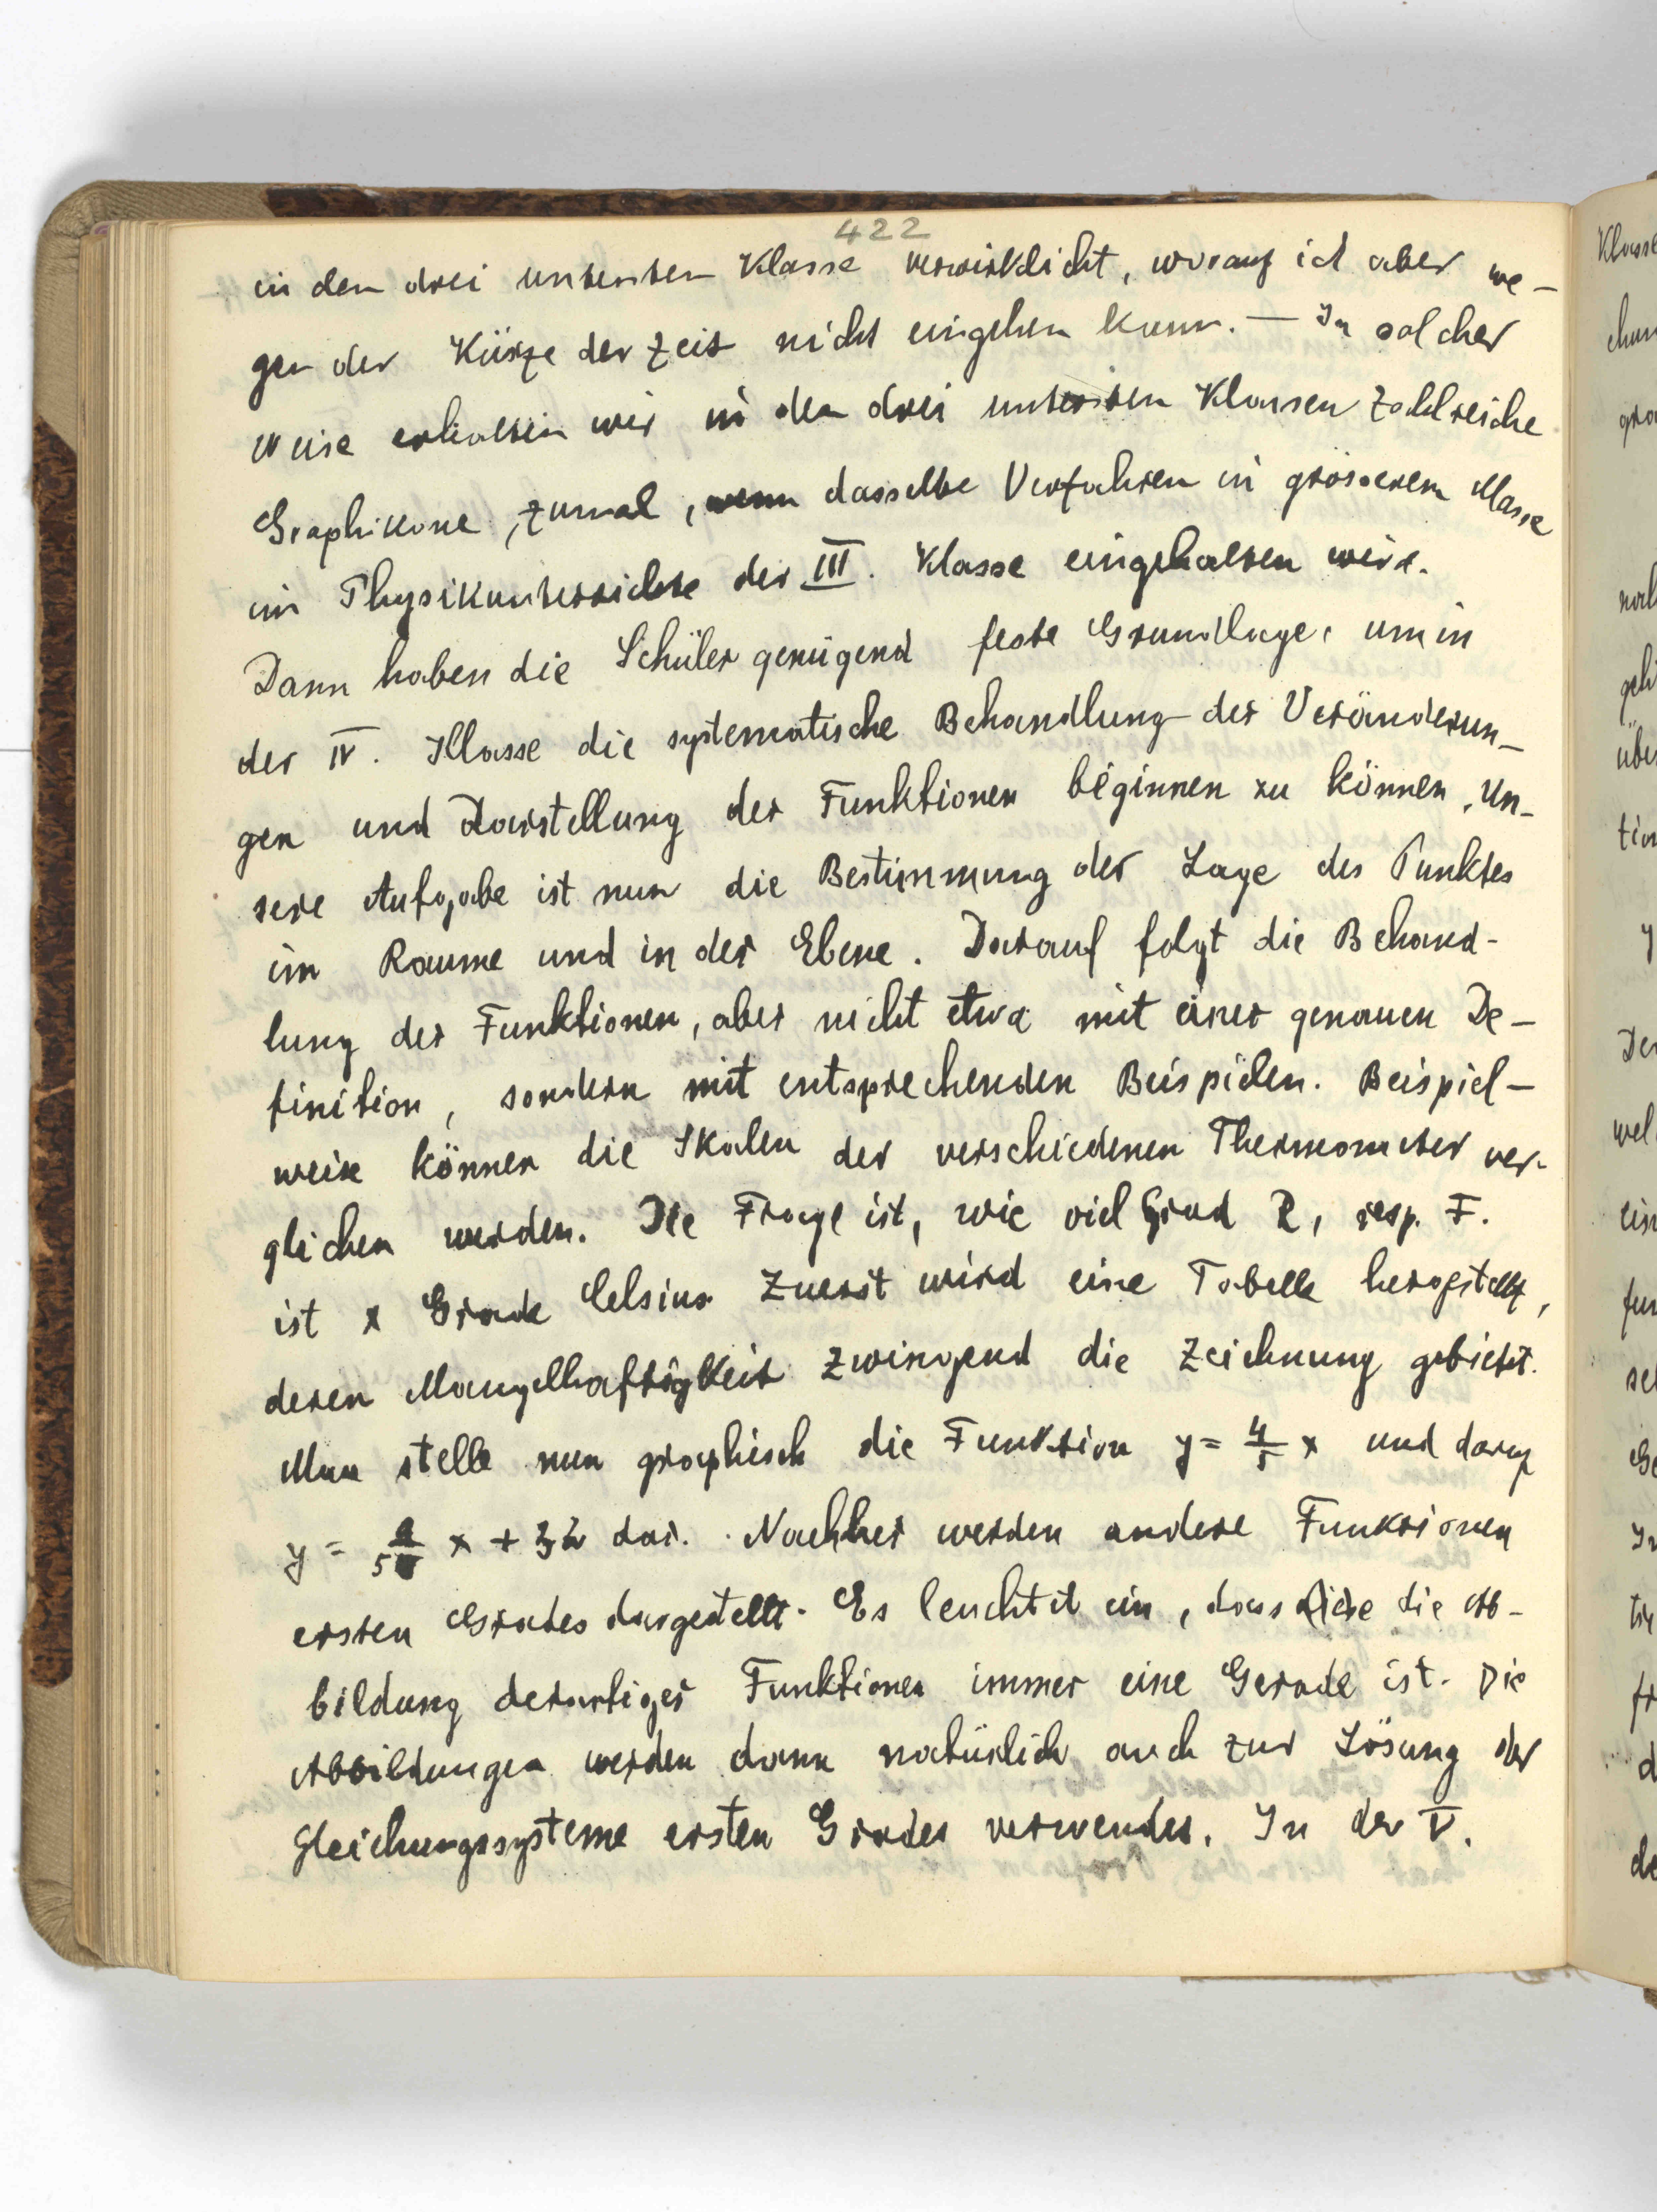 422
in den drei untersten Klasse verwirklicht, worauf ich aber we-
gen der Kürze der Zeit nicht eingehen kann. — In solcher
Weise erhalten wir in den drei untersten Klassen zahlreiche
Graphikone, zumal, wenn dasselbe Verfahren in grösserem Masse
im Physikunterrichte der III. Klasse eingehalten wird.
Dann haben die Schüler genügend feste Grundlage, um in
der IV. Klasse die systematische Behandlung der Veränderun-
gen und Darstellung der Funktionen beginnen zu können. Un-
sere Aufgabe ist nun die Bestimmung der Lage des Punktes
im Raume und in der Ebene. Darauf folgt die Behand-
lung der Funktionen, aber nicht etwa mit einer genauen De-
finition, sondern mit entsprechenden Beispielen. Beispiel-
weise können die Skalen der verschiedenen Thermometer ver-
glichen werden. Die Frage ist, wie viel Grad R, resp. F.
ist x Grade Celsius. Zuerst wird eine Tabelle hergestellt,
deren Mangelhaftigkeit zwingend die Zeichnung gebietet.
Man stelle nun graphisch die Funktion y = 4/5 x und darauf
y = 9/5 x + 32 dar. Nachher werden andere Funktionen
ersten Grades dargestellt. Es leuchtet ein, dass die Ab-
bildung derartiger Funktionen immer eine Gerade ist. Die
Abbildungen werden dann natürlich auch zur Lösung der
Gleichungssysteme ersten Grades verwendet. In der V.